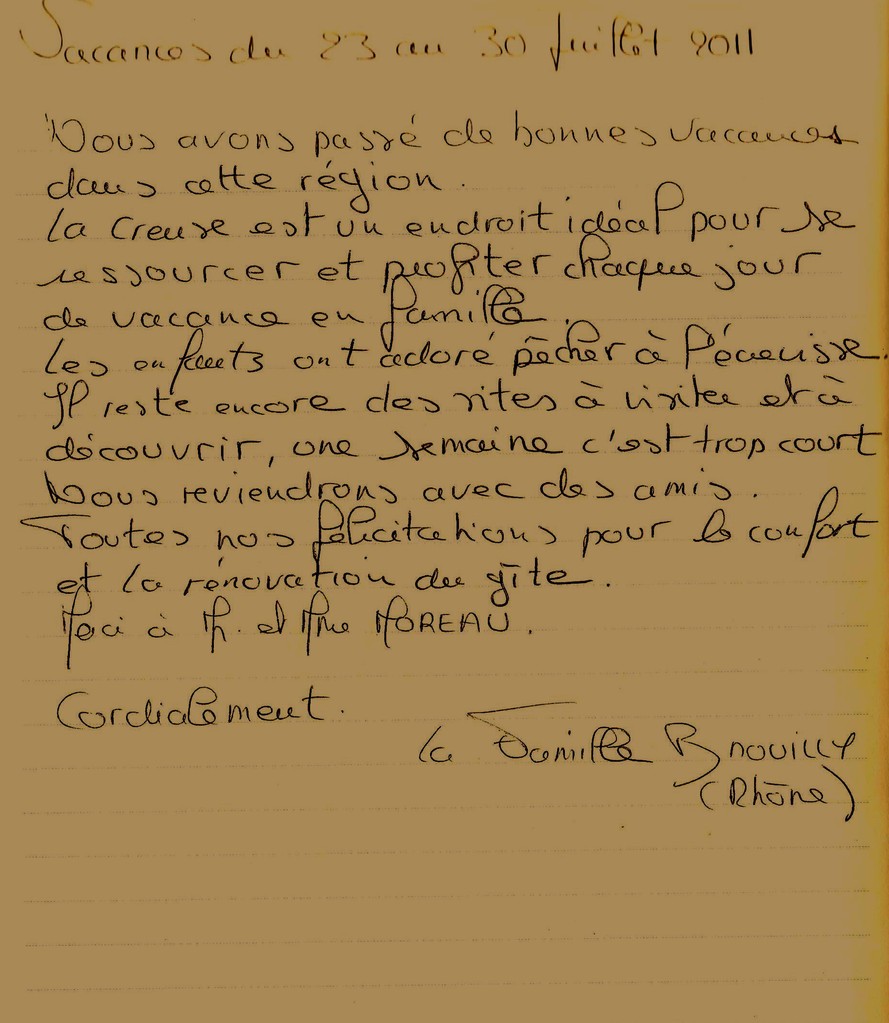 Vacances du 23 au 30 Juillet 2011
Nous avons passé de bonnes vacances
dans cette région.
La Creuse est un endroit idéal pour se
ressourcer et profiter chaque jour
de vacance en famille.
Les enfants ont adoré pêcher à l'écrevisse.
Il reste encore des sites à visiter et à
découvrir, une semaine c'est trop court
Nous reviendrons avec des amis.
Toutes nos félicitations pour le confort
et la rénovation du gîte.
Merci à M. et Mme MOREAU.
Cordialement.
La Famille
(Rhône)